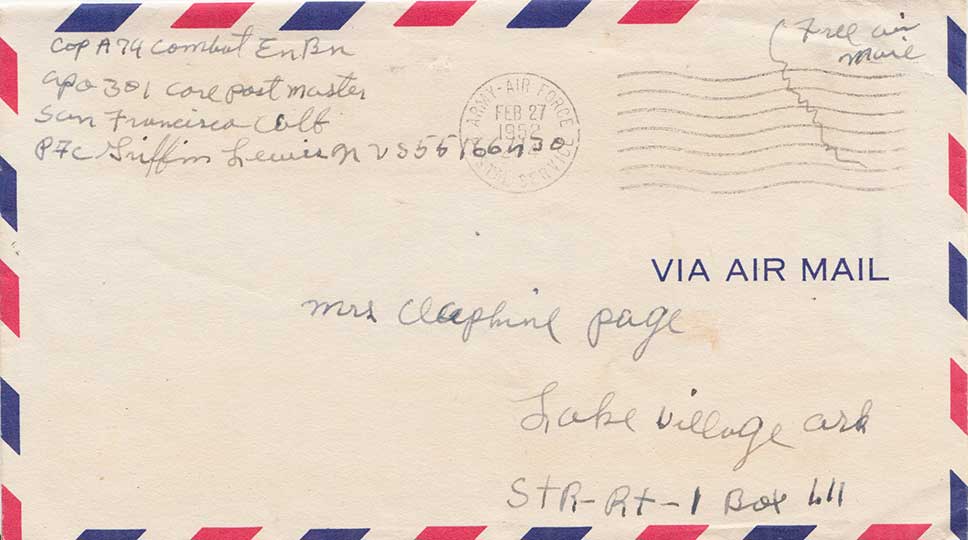 Cop A 74 Combat En Bn
apo 301 care post master
San Francisco Calf
Pfc Griffin Lewis N US55166430
ARMY-AIR FORCE
FEB 27
1952
POSTAL SERVICE
(Free air
mail
VIA AIR MAIL
mrs page
Lake village ark
StR-Rt-1 Box